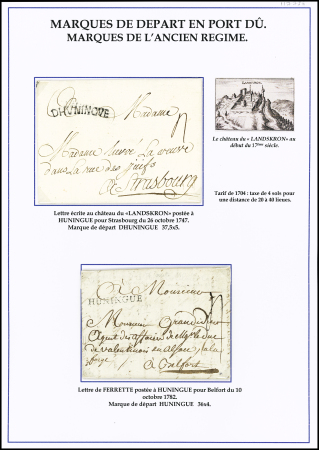 MARQUES DE DEPART EN PORT DÛ.
MARQUES DE L'ANCIEN REGIME.
DHUNINGUE
Madame
Madame hervé La veuve
dans la rue des juifs
a Strasbourg
Le château du « LANDSKRON » au
début du 17ème siècle.
Lettre écrite au château du «LANDSKRON» postée à
HUNINGUE pour Strasbourg du 26 octobre 1747.
Marque de départ DHUNINGUE 37,5x5.
Tarif de 1704 : taxe de 4 sols pour
une distance de 20 à 40 lieues.
A Monsieur
HUNINGUE
Monsieur
agent des affaires de
de valentinois en alsace a la
forge
a Belfort
Lettre de FERRETTE postée à HUNINGUE pour Belfort du 10
octobre 1782.
Marque de départ HUNINGUE 36x4.